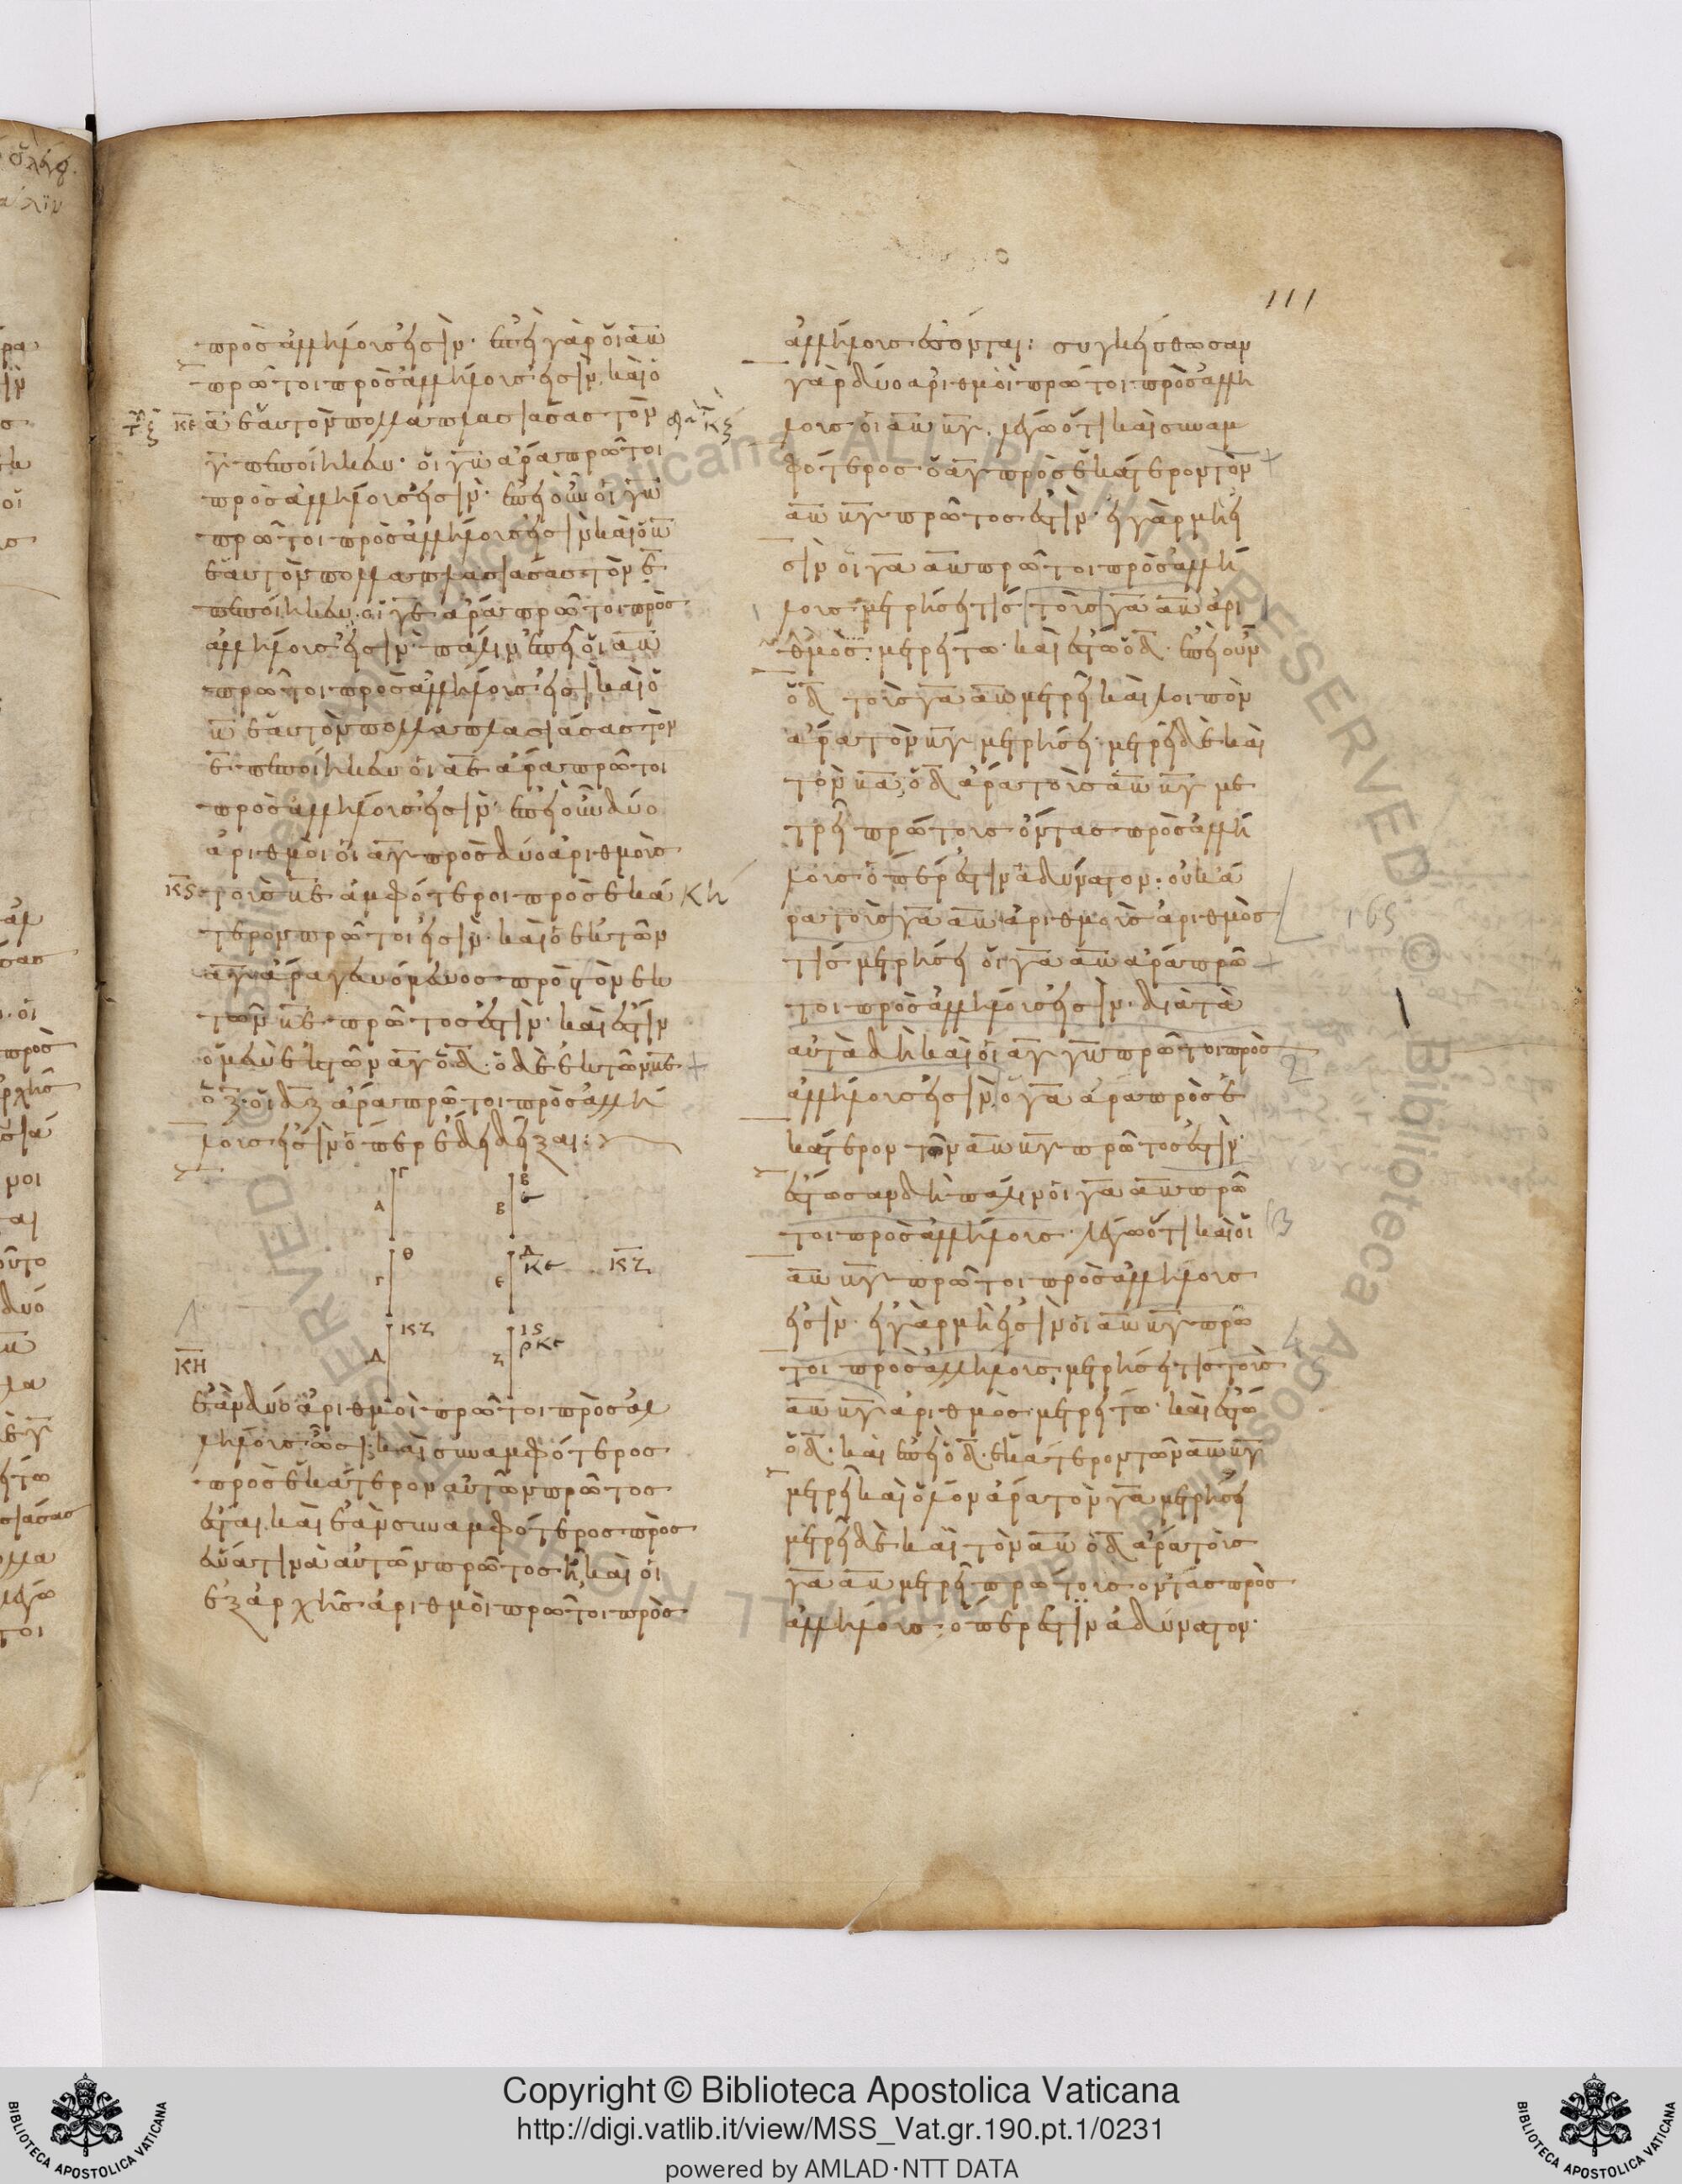 111
πρὸς ἀλλήλους εἰσίν· ἐπεὶ γὰρ οἱ α̅β̅
πρῶτοι πρὸς ἀλλήλους εἰσίν, καὶ ὁ
κε̅ α̅ ἑαυτὸν πολλαπλασιάσας τὸν
γ̅ πεποίηκεν· οἱ γ̅β̅ ἄρα πρῶτοι
πρὸς ἀλλήλους εἰσίν· ἐπεὶ οὖν οἱ γ̅β̅
πρῶτοι πρὸς ἀλλήλους εἰσίν καὶ ὁ β̅
ἑαυτὸν πολλαπλασιάσας τὸν ε̅
πεποίηκεν· οἱ γ̅ε̅ ἄρα πρῶτοι πρὸς
ἀλλήλους εἰσίν· πάλιν ἐπεὶ οἱ α̅β̅
πρῶτοι πρὸς ἀλλήλους εἰσὶ καὶ ὁ
β̅ ἑαυτὸν πολλαπλασιάσας τὸν
ε̅ πεποίηκεν οἱ α̅ε̅ ἄρα πρῶτοι
πρὸς ἀλλήλους εἰσίν· ἐπεὶ οὖν δύο
ἀριθμοὶ οἱ α̅γ̅ πρὸς δύο ἀριθμοὺς
κς̅ τοὺς β̅ε̅ ἀμφότεροι πρὸς ἑκά κη
τερον πρῶτοι εἰσίν· καὶ ὁ ἐκ τῶν
α̅γ̅ ἄρα γενόμενος πρὸς τὸν ἐκ
τῶν β̅ε̅ πρῶτος ἐστίν· καὶ ἐστὶν
ὁ μὲν ἐκ τῶν α̅γ̅ ὁ δ̅· ὁ δὲ ἐκ τῶν β̅ε̅
ὁ ζ̅· οἱ δ̅ζ̅ ἄρα πρῶτοι πρὸς ἀλλή
λους εἰσίν ὅπερ ἔδει δεῖξαι:
Α Γ Β Β
Γ Θ Ε Δ κε κζ̅
Δ ΚΖ Ζ ΙϚ ρκε
κη̅
ἐὰν δύο ἀριθμοὶ πρῶτοι πρὸς ἀλ
λήλους ὦσι· καὶ συναμφότερος
πρὸς ἑκάτερον αὐτῶν πρῶτος
ἔσται, καὶ ἐὰν συναμφότερος πρὸς
ἕνα τινὰ αὐτῶν πρῶτος ῇ καὶ οἱ
ἐξ ἀρχῆς ἀριθμοὶ πρῶτοι πρὸς
ἀλλήλους ἔσονται: συγκείσθωσαν
γὰρ δύο ἀριθμοὶ πρῶτοι πρὸς ἀλλή
λους οἱ α̅β̅ β̅γ̅, λέγω ὅτι καὶ συναμ
φότερος ὁ α̅γ̅ πρὸς ἑκάτερον τῶν
α̅β̅ β̅γ̅ πρῶτος ἐστίν· εἰ γὰρ μή εἰ
σὶν οἱ γ̅α̅ α̅β̅ πρῶτοι πρὸς ἀλλή
λους μετρήσει τίς τοὺς γ̅α̅ α̅β̅ ἀρι
θμὸς· μετρείτω· καὶ ἔστω ὁ δ̅· ἐπεὶ οὖν
ὁ δ̅ τοὺς γ̅α̅ α̅β̅ μετρεῖ καὶ λοιπὸν
ἄρα τὸν β̅γ̅ μετρήσει· μετρεῖ δὲ καὶ
τὸν β̅α̅, ὁ δ̅ ἄρα τοὺς α̅β̅ β̅γ̅ με
τρεῖ πρώτους ὄντας πρὸς ἀλλή
λους ὅπερ ἐστὶν ἀδύνατον· οὐκ ἄ
ρα τοὺς γ̅α̅ α̅β̅ ἀριθμοὺς ἀριθμὸς
τὶς μετρήσει οἱ γ̅α̅ α̅β̅ ἄρα πρῶ
τοι πρὸς ἀλλήλους εἰσίν· διὰ τὰ
αὐτὰ δὴ καὶ οἱ α̅γ̅ γ̅β̅ πρῶτοι πρὸς
ἀλλήλους εἰσίν, ὁ γ̅α̅ ἄρα πρὸς ἑ
κάτερον τῶν α̅β̅ β̅γ̅ πρῶτος ἐστίν·
ἔστωσαν δὴ πάλιν οἱ γ̅α̅ α̅β̅ πρῶ
τοι πρὸς ἀλλήλους· λέγω ὅτι καὶ οἱ
α̅β̅ β̅γ̅ πρῶτοι πρὸς ἀλλήλους
εἰσίν· εἰ γὰρ μὴ εἰσὶν οἱ α̅β̅ β̅γ̅ πρῶ
τοι πρὸς ἀλλήλους, μετρήσει τίς τοὺς
α̅β̅ β̅γ̅ ἀριθμὸς· μετρείτω· καὶ ἔστω
ὁ δ̅· καὶ ἐπεὶ ὁ δ̅ ἑκάτερον τῶν α̅β̅ β̅γ̅
μετρεῖ καὶ ὅλον ἄρα τὸν γ̅α̅ μετρήσει
μετρεῖ δὲ καὶ τὸν α̅β̅ ὁ δ̅ ἄρα τοὺς
γ̅α̅ α̅β̅ μετρεῖ πρώτους ὄντας πρὸς
ἀλλήλους· ὅπερ ἐστὶν ἀδύνατον·
Copyright © Biblioteca Apostolica Vaticana
http://digi.vatlib.it/view/MSS_Vat.gr.190.pt.1/0231
powered by AMLAD·NTT DATA
BIBLIOTECA APOSTOLICA VATICANA
BIBLIOTECA APOSTOLICA VATICANA